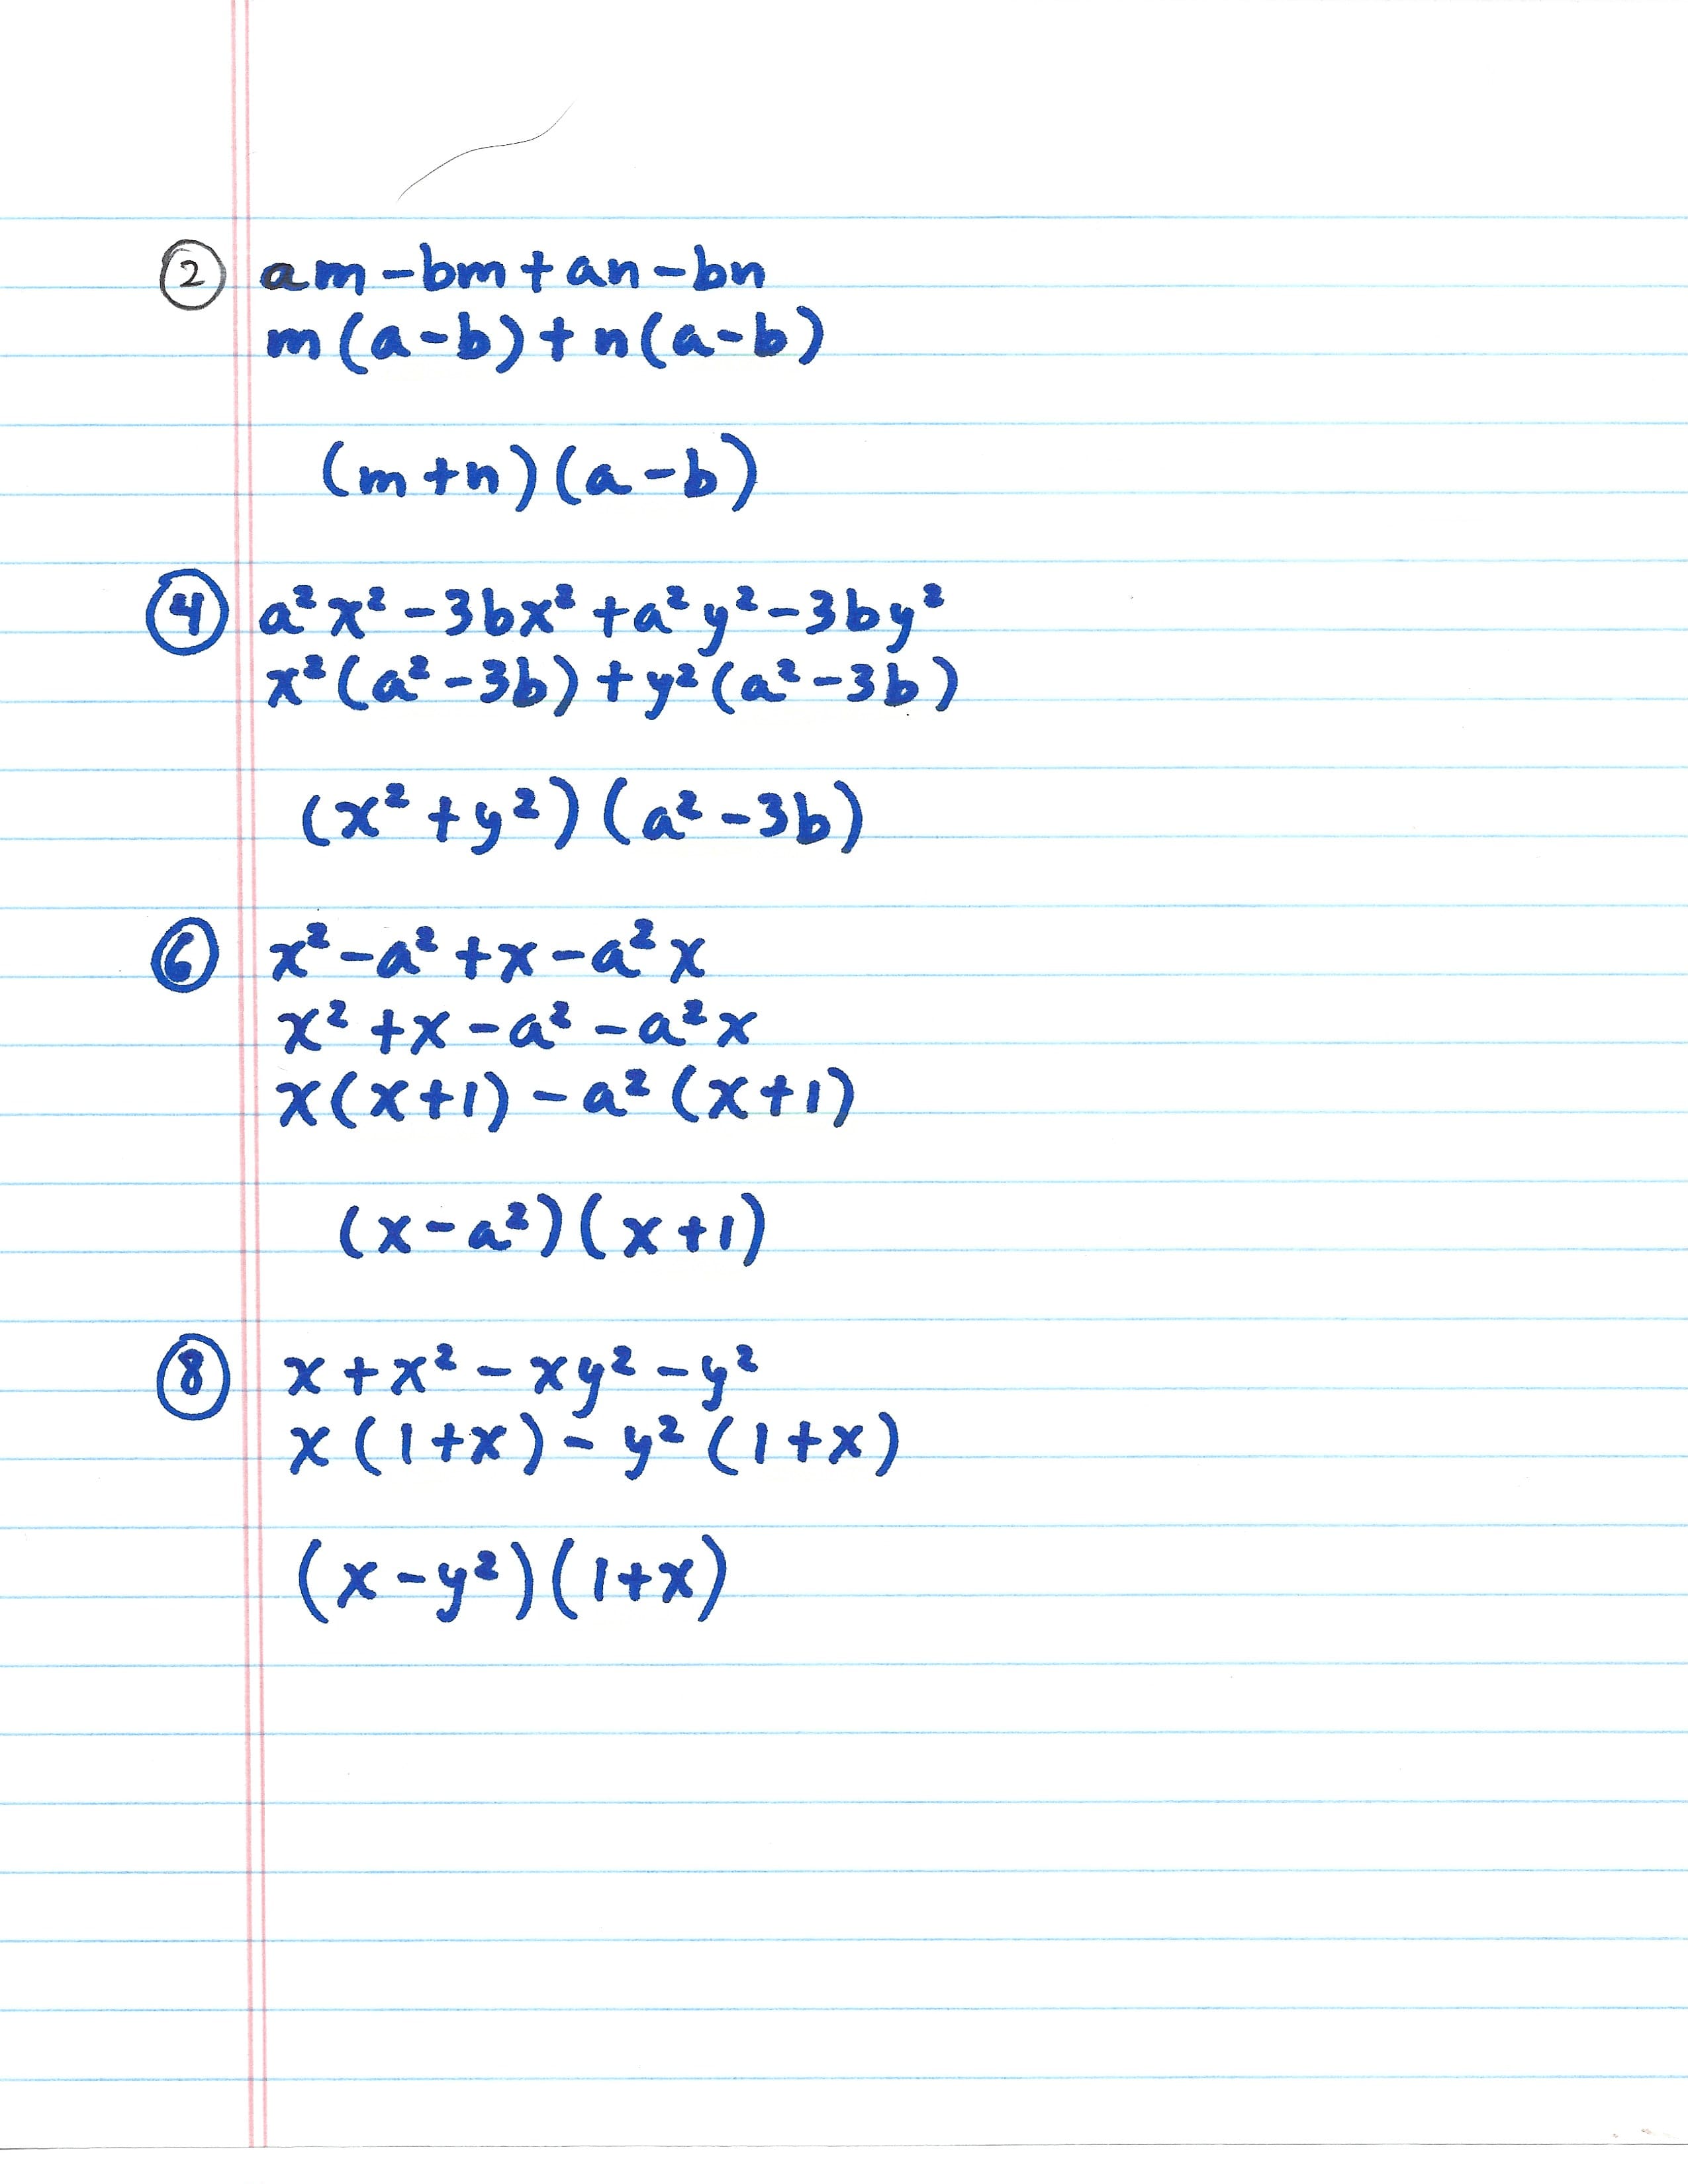 ② am-bm+an-bn
m(a-b)+n(a-b)
(m+n)(a-b)
④ a²x²-3bx²+a²y²-3by²
x²(a²-3b)+y²(a²-3b)
(x²+y²)(a²-3b)
⑥ x²-a²+x-a²x
x²+x-a²-a²x
x(x+1)-a²(x+1)
(x-a²)(x+1)
⑧ x+x²-xy²-y²
x(1+x)-y²(1+x)
(x-y²)(1+x)